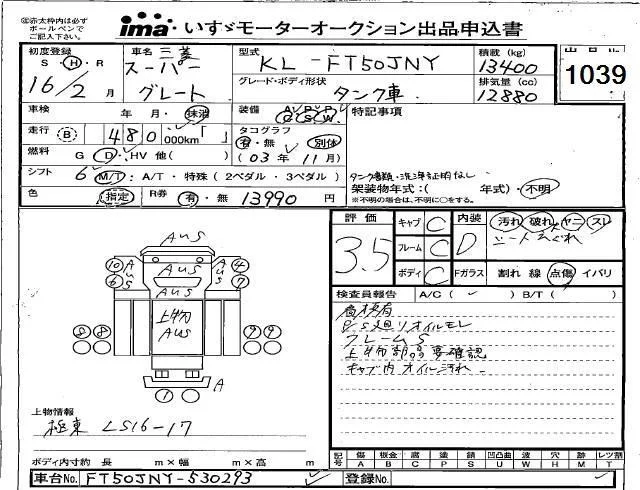 ◎赤太枠内は必ずボールペンでご記入下さい。
ima いすゞモーターオークション出品申込書
初度登録 S・H・R 16/2 月
車名 三菱 スーパーグレート
型式 KL-FT50JNY
積載 (kg) 13400
出品No 1039
グレード・ボディ形状 タンク車
排気量 (cc) 12880
車検 年・月・抹消
装備 A/C P/S P/W S W
特記事項
走行 B 480 000km「 」
タコグラフ 有・無 別体
燃料 G D・HV 他( )
(03年 11月)
シフト 6 M/T・A/T・特殊 (2ペダル・3ペダル)
タンク書類・洗浄証明なし
架装物年式:( 年式)・不明
※不明の場合は、不明に○をする。
色 指定 R券 有・無 13990 円
評価 3.5
キャブ C
フレーム C
ボディ C
内装 D 汚れ 破れ ヤニ スレ
シートえぐれ
Fガラス 割れ 線 点傷 イバリ
検査員報告 A/C ( ✓ ) B/T ( )
高床有
P/S廻りオイルモレ
フレームS
上物部品要確認
キャブ内オイル汚れ
AUS
AUS
10 AUS 4
6 AUS 7
上物 AUS
8 8 9 9
A
1
上物情報
極東 LS16-17
ボディ内寸約 長 m×幅 m×高 m
記号 傷 A 板金 B 腐 C 塗 P 錆 S 凹凸曲 U 波 W 穴 H 跡 M レツ割 T
車台No. FT50JNY-530293 ✓ 登録No.